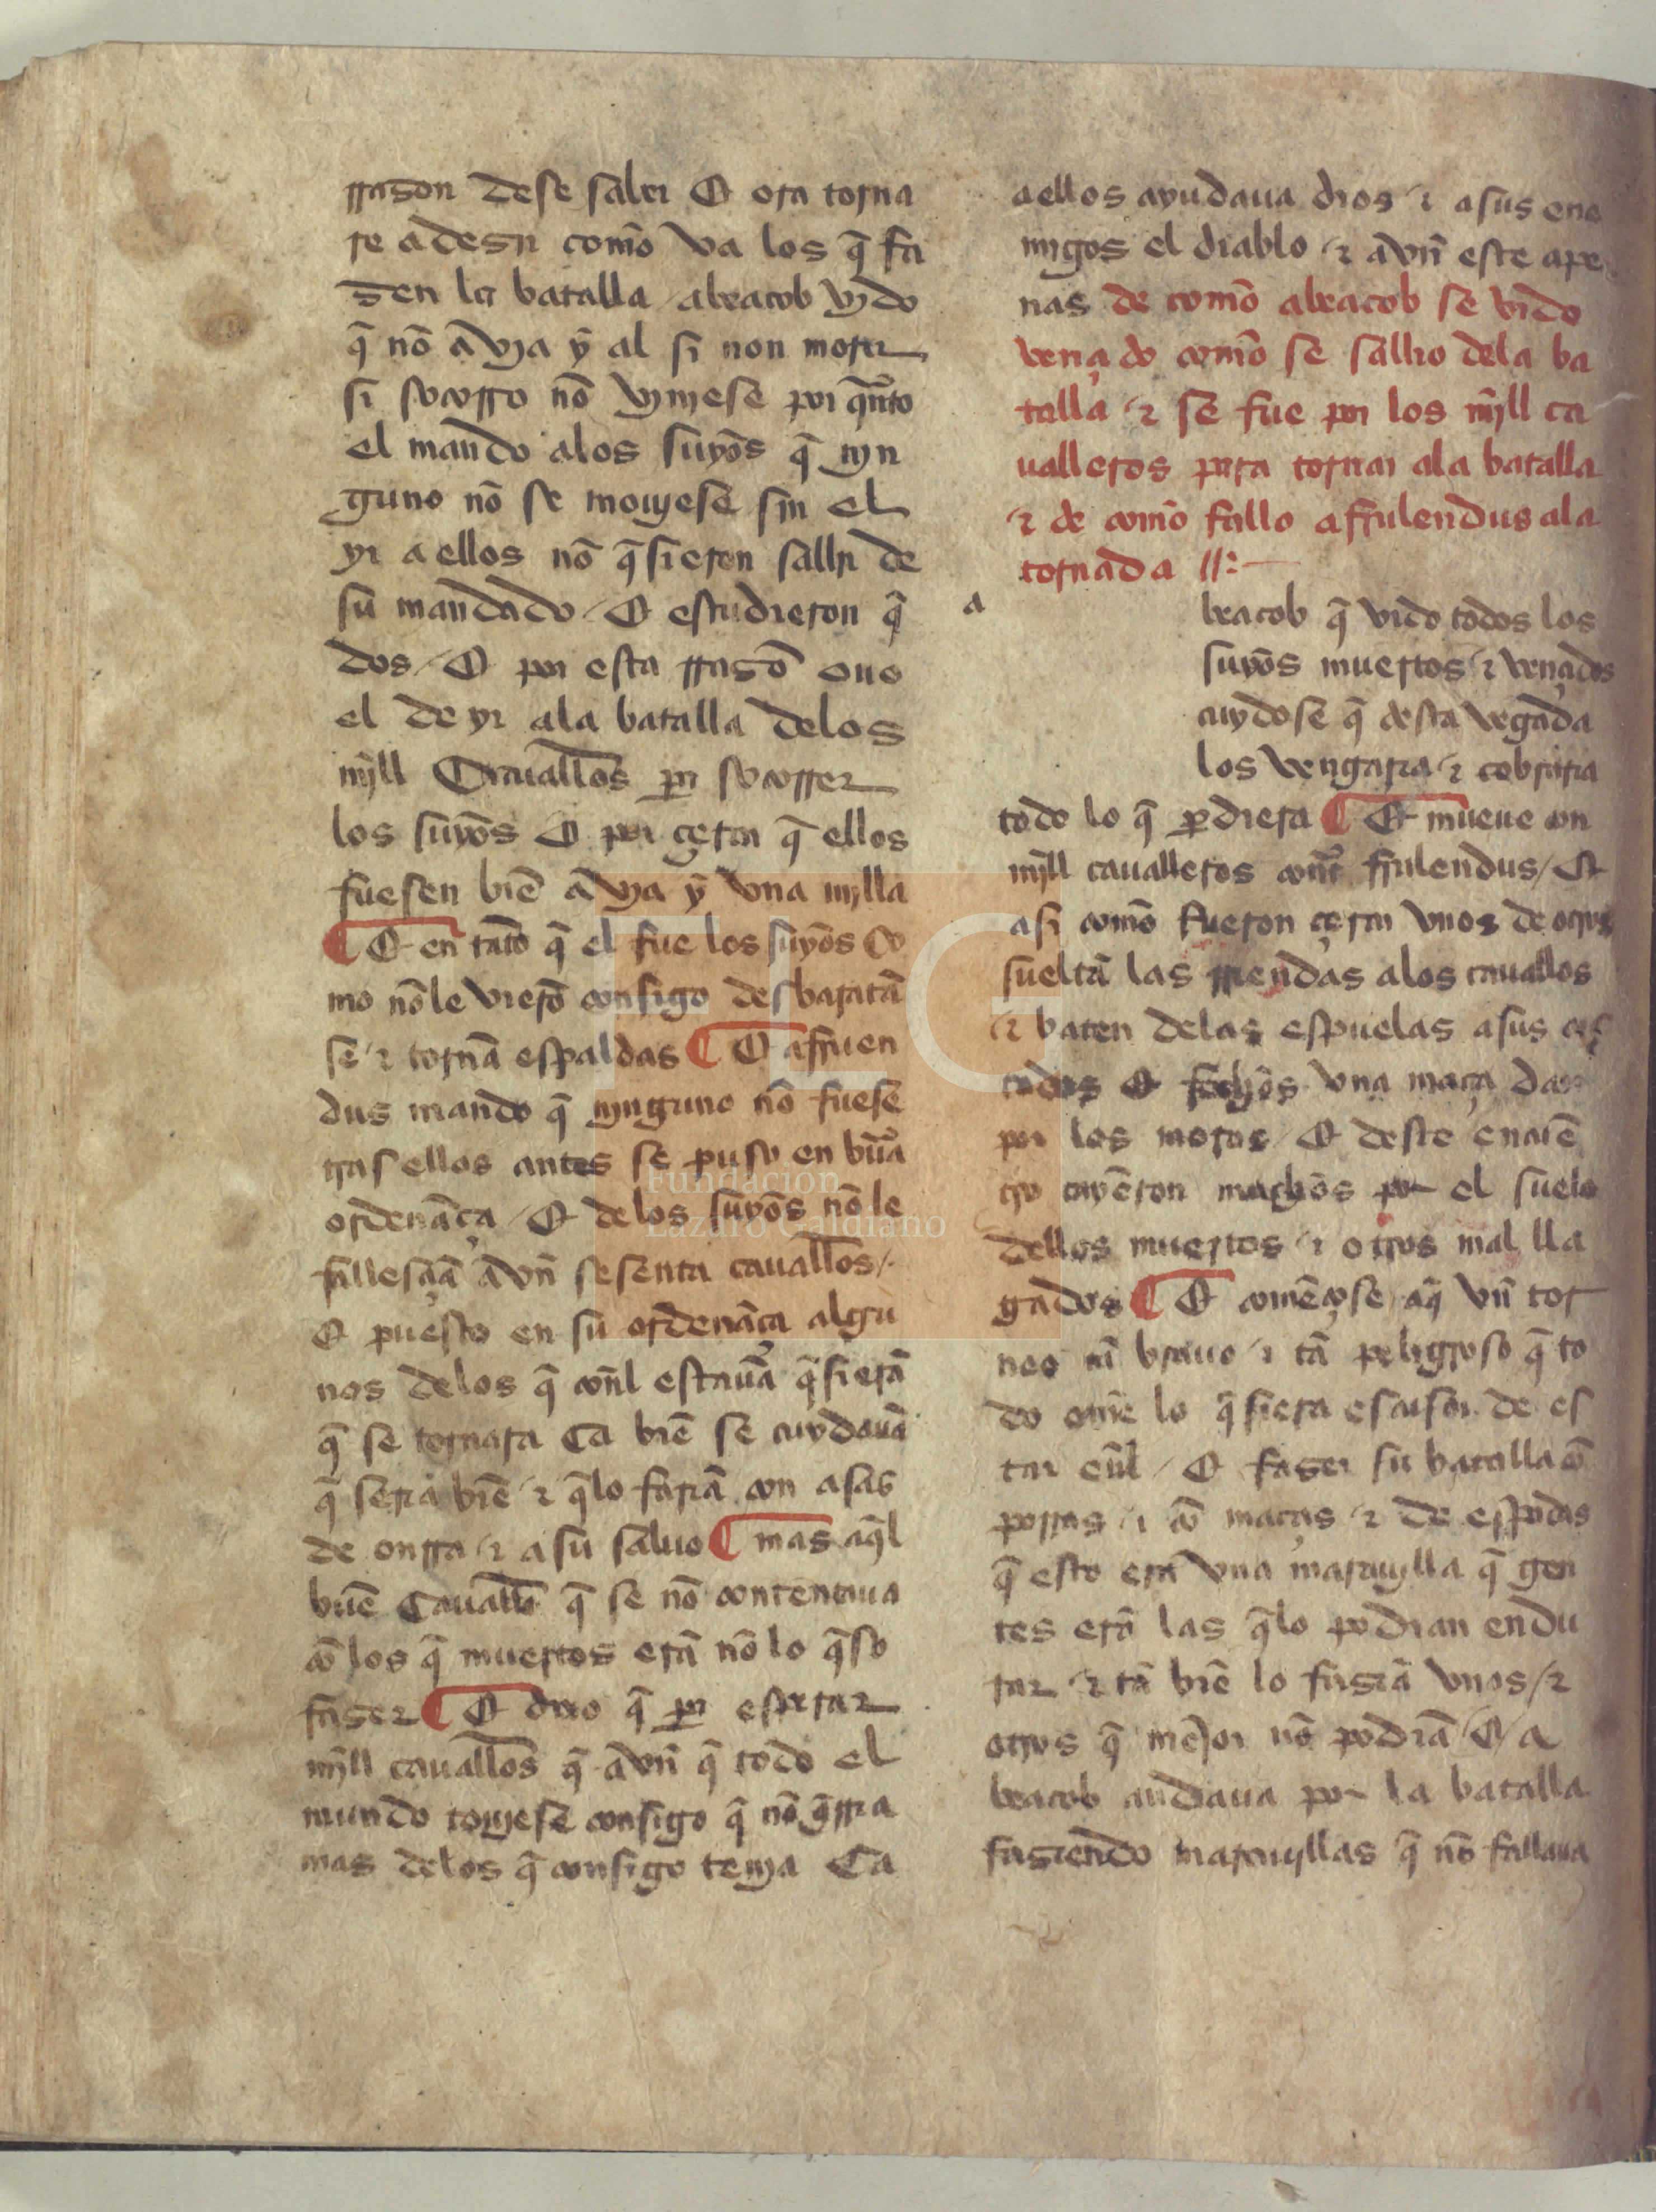 rrazon de se saber E ora torna
re a desir comō va los q̄ fa
zen la batalla / abeacob vydo
q̄ nō avya ȳ al si non morir
si socorro nō vynyese por q̄nto
el mando a los suyos q̄ nyn
guno nō se moviese sin el
yr a ellos nō q̄sieron sallir de
su mandado / E estudieron q̄
dos / E por esta rrazō ouo
el de yr a la batalla de los
mjll Cauallōs por socorrer
los suyos E por çerca q̄ ellos
fuesen biē avya ȳ vna mjlla
¶ E en tāto q̄ el fue los suyos co
mo nō le vierō consigo desbaratā
se ⁊ tornā espaldas ¶ E afruen
dus mando q̄ nynguno nō fuese
tras ellos antes se puso en buēa
ordenāça / E de los suyos nō le
fallesçiā avn̄ sesenta cauallōs /
E puesto en su ordenāça algu
nos de los q̄ con̄l estauā q̄sierā
q̄ se tornara Ca biē se cuydauā
q̄ seria biē ⁊ q̄ lo fariā con asas
de onrra ⁊ a su saluo ¶ mas aq̄l
buē Cauallō q̄ se nō contentaua
cō los q̄ muertos erā nō lo q̄so
faser ¶ E dixo q̄ por esperar
mjll cauallōs q̄ avn̄ q̄ todo el
mundo toviese consigo q̄ nō q̄rria
mas de los q̄ consigo tenya Ca
a ellos ayudaua dios ⁊ a sus ene
migos el diablo ⁊ avn̄ este ape
nas de comō abeacob se vido
vençido comō se sallio de la ba
talla ⁊ se fue por los mjll ca
ualleros para tornar a la batalla
⁊ de comō fallo a frulendus a la
tornada //:—
a
beacob q̄ vido todos los
suyos muertos ⁊ vençidos
cuydose q̄ desta vegada
los vengaria ⁊ cobraria
todo lo q̄ perdiera ¶ E mueue con
mjll caualleros cont̄ frulendus / E
asi comō fueron çerca vnos de otros
sueltā las rriendas a los cauallos
⁊ baten de las espuelas a sus cos
tados E fechos vna maça dan
por los moros / E deste encuē
tro cayeron muchos por el suelo
dellos muertos ⁊ otros mal lla
gados ¶ E comēçose aq̄ vn̄ tor
neo tā brauo ⁊ tā peligroso q̄ to
do om̄e lo q̄siera escusar de es
tar en̄l / E faser su batalla cō
porras ⁊ cō maças ⁊ de espadas
q̄ esto era vna marauylla q̄ gen
tes erā las q̄ lo podian endu
rar ⁊ tā biē lo fasiā vnos / ⁊
otros q̄ mejor nō podriā E a
beacob andaua por la batalla
fasiendo marauyllas q̄ nō fallaua
Fundación
Lázaro Galdiano
FLG